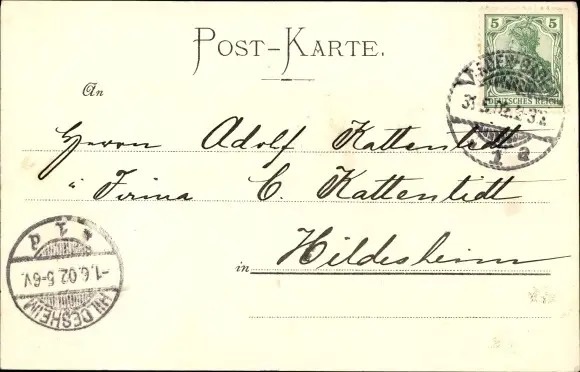 POST-KARTE.
5 5
DEUTSCHES REICH
31.5.02.
1 a
An
Herrn Adolf Kattentidt
" Firma C. Kattentidt
in Hildesheim
HILDESHEIM
-1.6.02 5-6V.
* 1 d